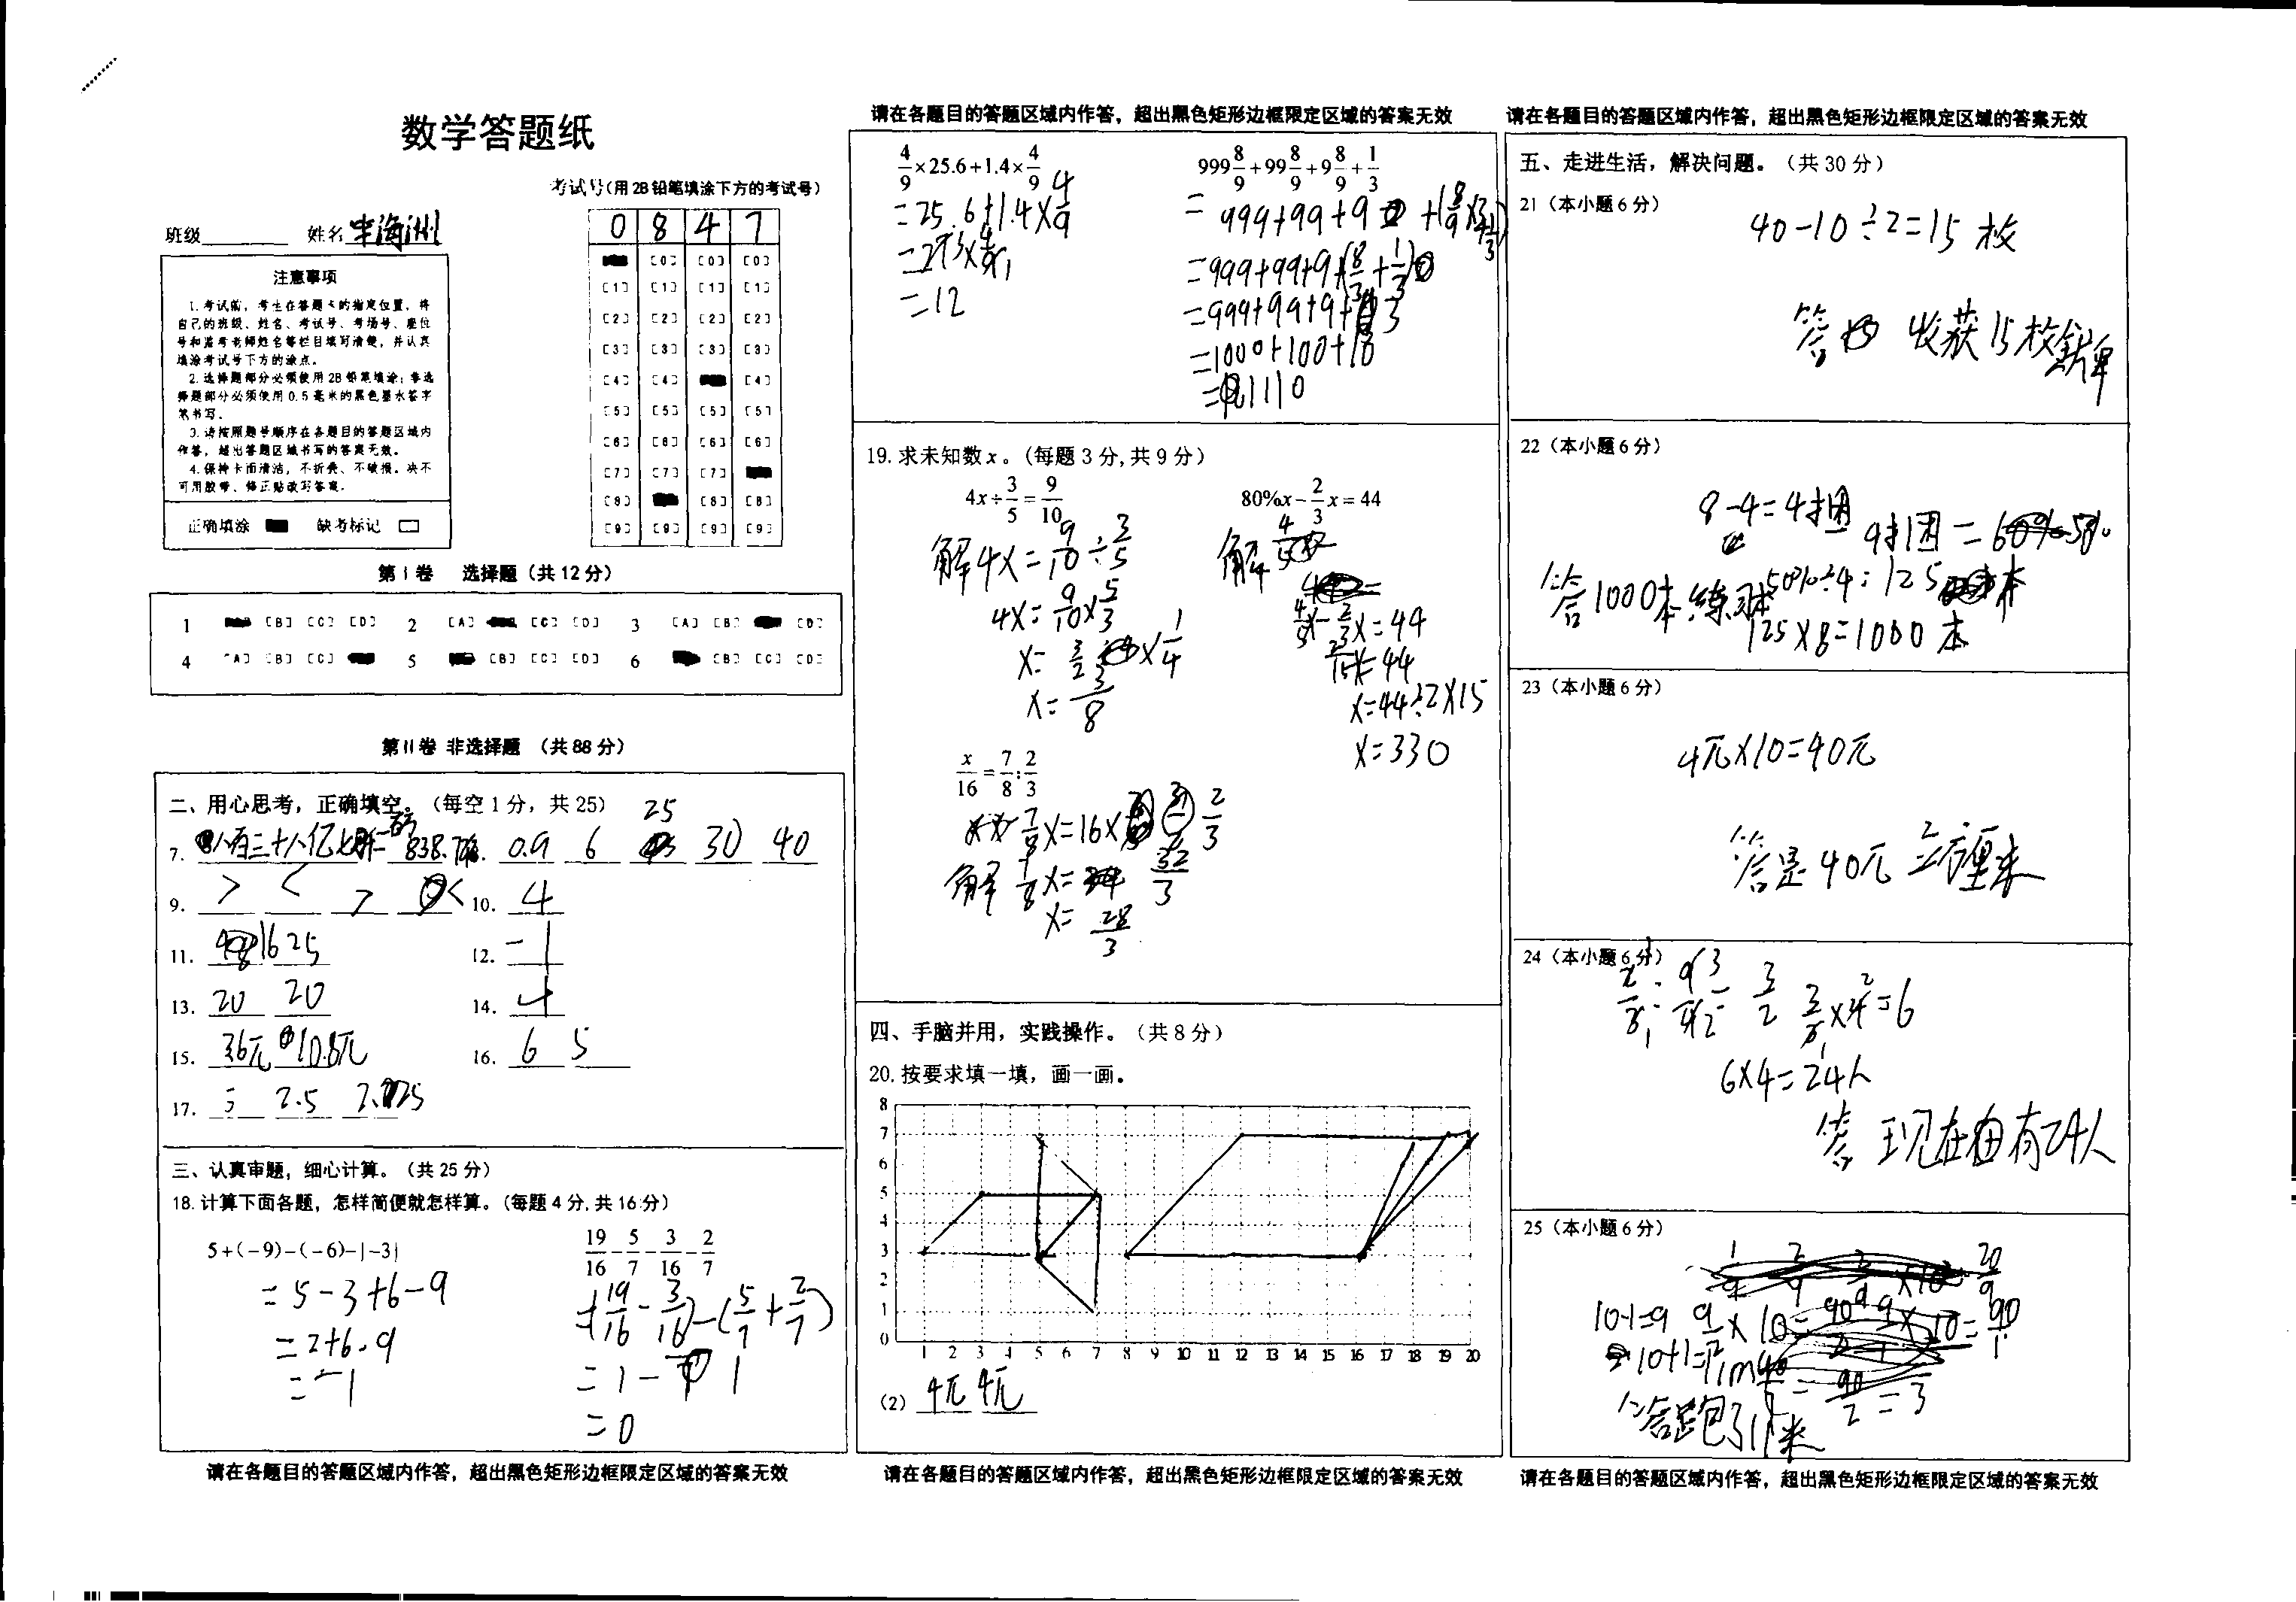 数学答题纸
考试号(用2B铅笔填涂下方的考试号)
班级 姓名
0 8 4 7
[0] [0] [0]
[1] [1] [1] [1]
[2] [2] [2] [2]
[3] [3] [3] [3]
[4] [4] [4]
[5] [5] [5] [5]
[6] [6] [6] [6]
[7] [7] [7]
[8] [8] [8]
[9] [9] [9] [9]
注意事项
1.考试前,考生在答题卡的指定位置,将
自己的班级、姓名、考试号、考场号、座位
号和监考老师姓名等栏目填写清楚,并认真
填涂考试号下方的涂点。
2.选择题部分必须使用2B铅笔填涂;非选
择题部分必须使用0.5毫米的黑色墨水签字
笔书写。
3.请按照题号顺序在各题目的答题区域内
作答,超出答题区域书写的答案无效。
4.保持卡面清洁,不折叠、不破损。决不
可用胶带、修正贴改写答案。
正确填涂 缺考标记
第I卷 选择题(共12分)
1 [B] [C] [D] 2 [A] [C] [D] 3 [A] [B] [D]
4 [A] [B] [C] 5 [B] [C] [D] 6 [B] [C] [D]
第II卷 非选择题 (共88分)
二、用心思考,正确填空。(每空1分,共25)
7. 八百三十八亿 838. 0.9 6 25 30 40
9. > < > < 10. 4
11. 16 25 12. -1
13. 20 20 14. 4
15. 36元 10.8元 16. 6 5
17. 2.5
三、认真审题,细心计算。(共25分)
18.计算下面各题,怎样简便就怎样算。(每题4分,共16分)
5+(-9)-(-6)-|-3|
=5-3+6-9
=2+6-9
=-1
19/16-5/7-3/16-2/7
=(19/16-3/16)-(5/7+2/7)
=1-1
=0
请在各题目的答题区域内作答,超出黑色矩形边框限定区域的答案无效
请在各题目的答题区域内作答,超出黑色矩形边框限定区域的答案无效
4/9×25.6+1.4×4/9
=25.6+1.4×4/9
=27×4/9
=12
999 8/9+99 8/9+9 8/9+1/3
=999+99+9+(8/9×3+1/3)
=999+99+9+(8/3+1/3)
=999+99+9+3
=1000+100+10
=1110
19.求未知数x。(每题3分,共9分)
4x÷3/5=9/10
解4x=9/10÷3/5
4x=9/10×5/3
x=3/2×1/4
x=3/8
80%x-2/3x=44
解
4/5x-2/3x=44
2/15x=44
x=44÷2×15
x=330
x/16=7/8:2/3
7/8x=16×2/3
解 7/8x=32/3
x=28/3
四、手脑并用,实践操作。(共8分)
20.按要求填一填,画一画。
8
7
6
5
4
3
2
1
0
1 2 3 4 5 6 7 8 9 10 11 12 13 14 15 16 17 18 19 20
(2) 4元 4元
请在各题目的答题区域内作答,超出黑色矩形边框限定区域的答案无效
请在各题目的答题区域内作答,超出黑色矩形边框限定区域的答案无效
五、走进生活,解决问题。(共30分)
21(本小题6分)
40-10÷2=15 枚
答 收获15枚
22(本小题6分)
8-4=4捆
50%÷4=125本
125×8=1000本
答1000本练习本
23(本小题6分)
4π×10=40π
答是40π立方厘米
24(本小题6分)
3/2
×4=6
6×4=24人
答 现在有24人
25(本小题6分)
10-1=9
10+1=
请在各题目的答题区域内作答,超出黑色矩形边框限定区域的答案无效